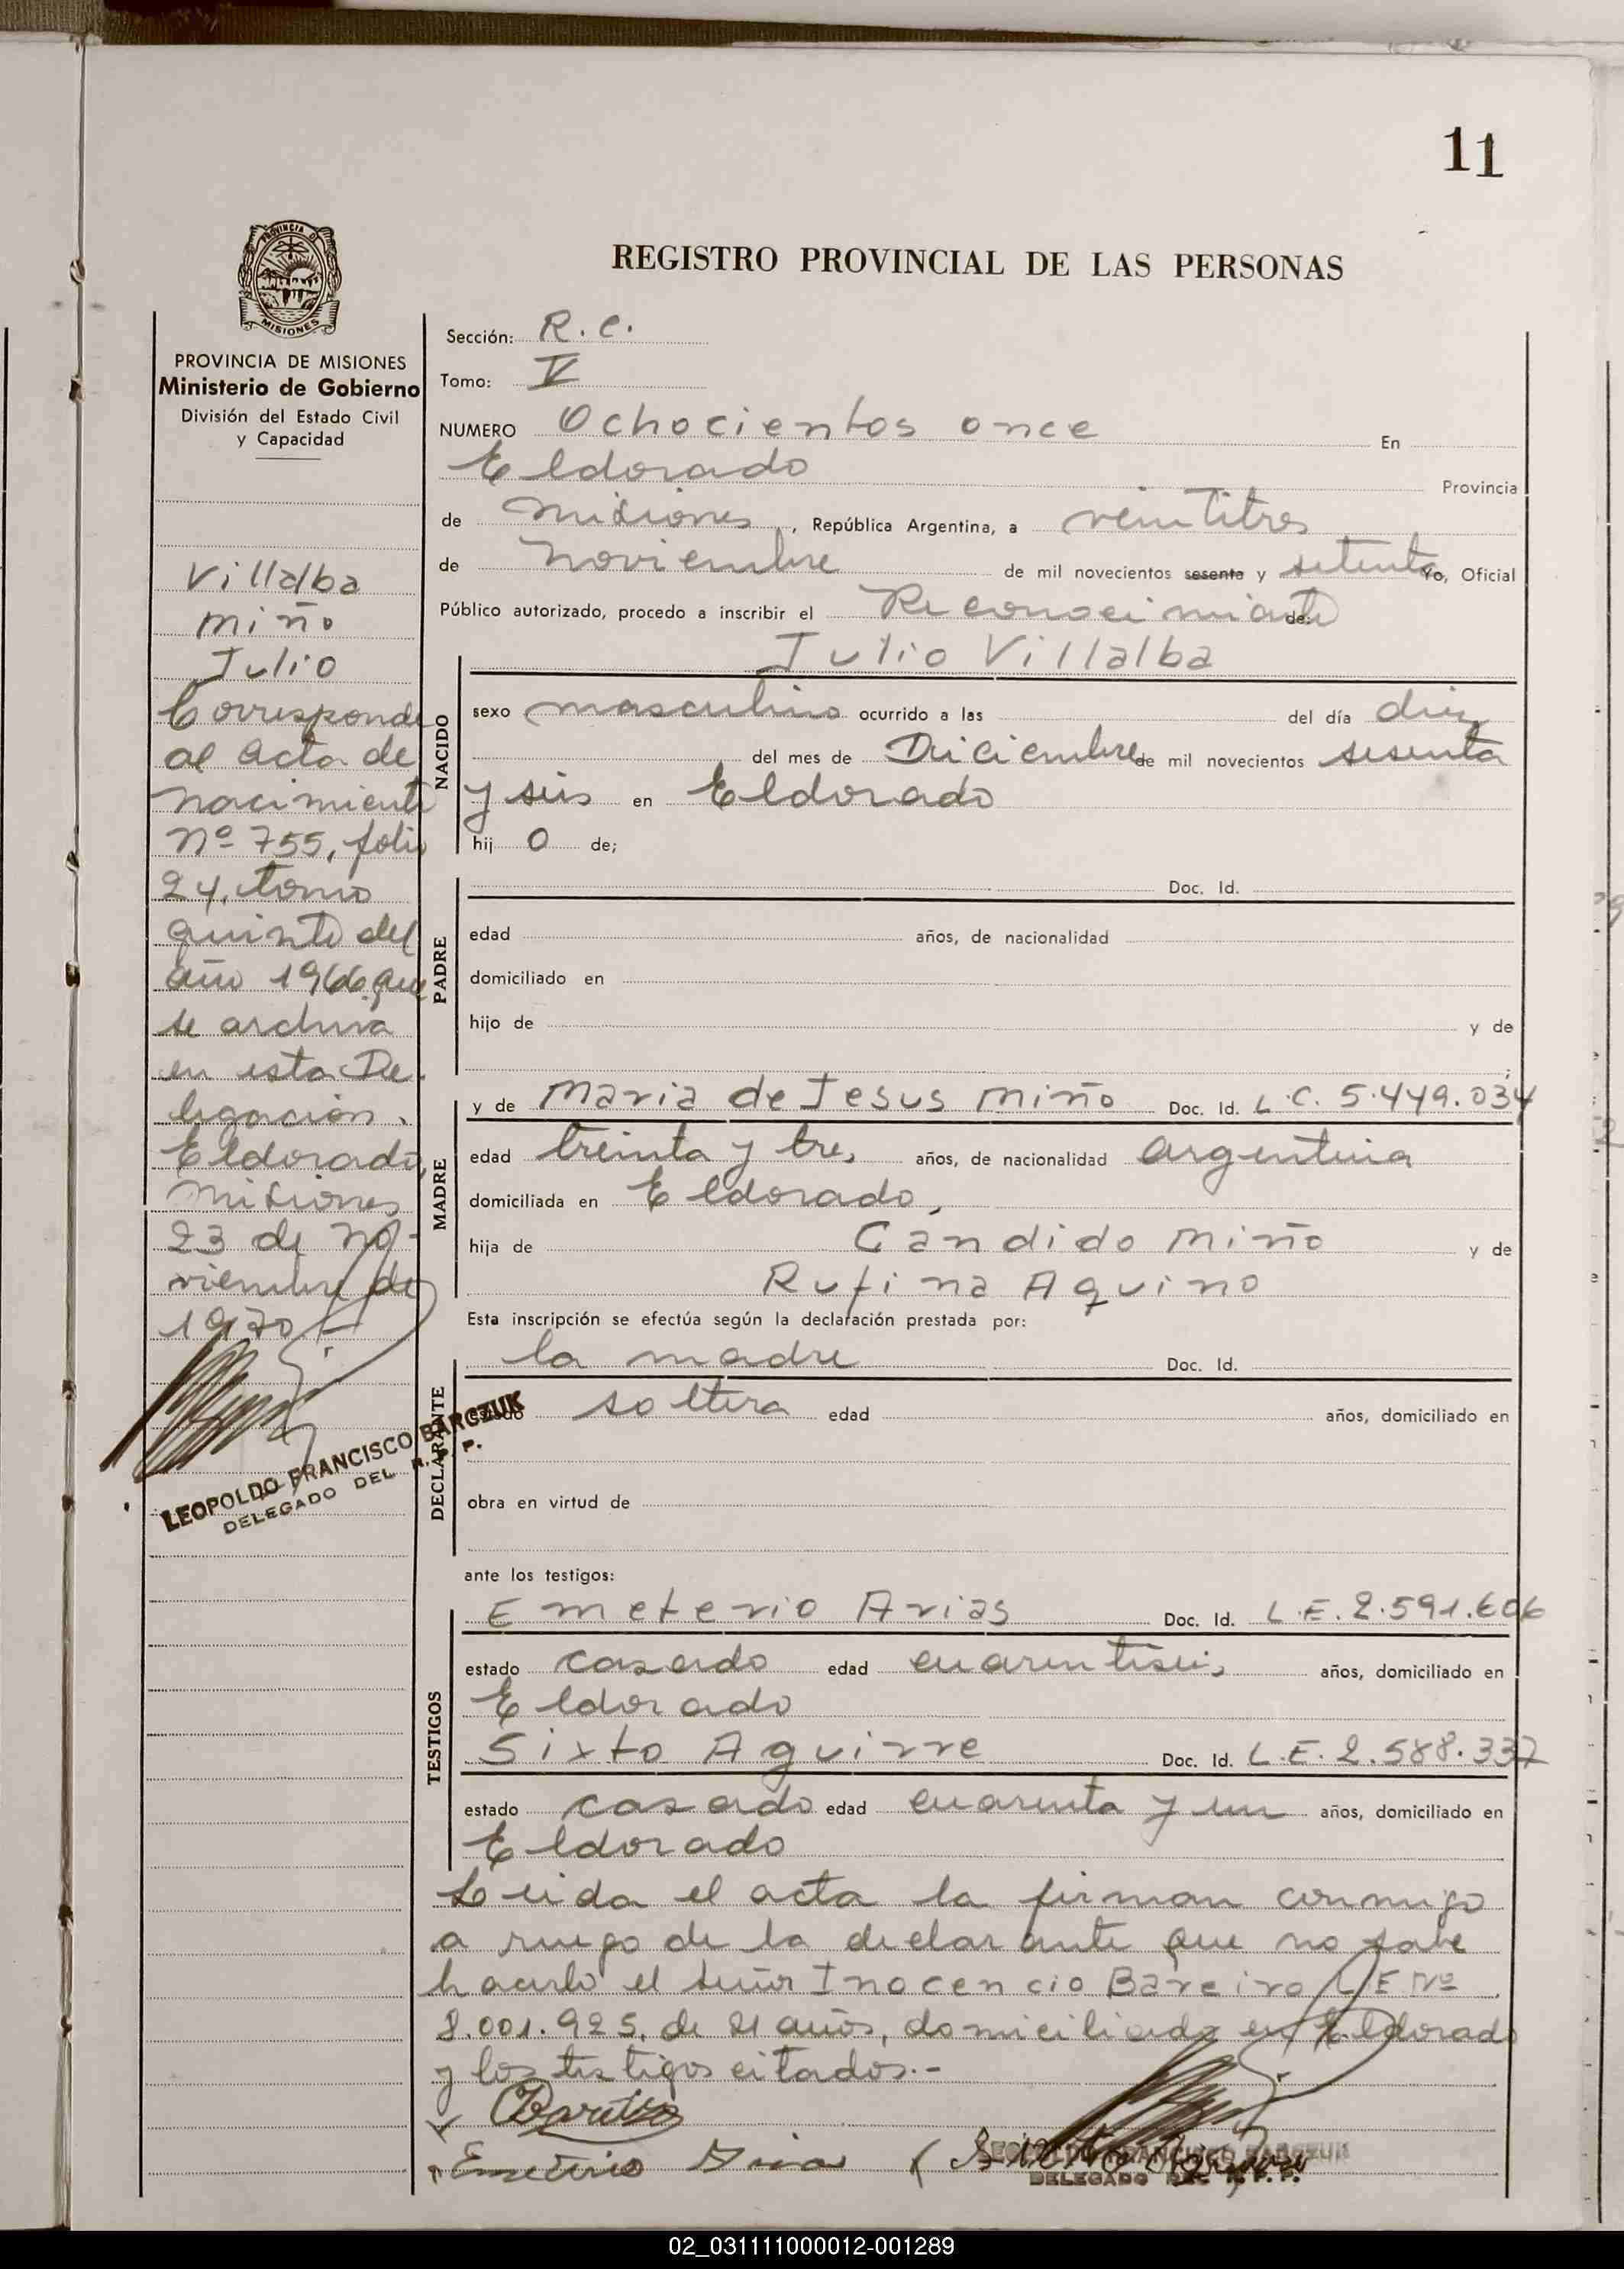 11
PROVINCIA DE
MISIONES
REGISTRO PROVINCIAL DE LAS PERSONAS
PROVINCIA DE MISIONES
Ministerio de Gobierno
División del Estado Civil
y Capacidad
Villalba
Miño
Julio
Corresponde
al acta de
nacimiento
Nº 755, folio
24, tomo
quinto del
año 1966 que
se archiva
en esta De
legación.
Eldorado,
Misiones
23 de no-
viembre de
1970
LEOPOLDO FRANCISCO BARCZUK
DELEGADO DEL R. P. P.
Sección: R. C.
Tomo: V
NUMERO Ochocientos once En
Eldorado Provincia
de Misiones, República Argentina, a veintitres
de noviembre de mil novecientos sesenta y setenta Yo, Oficial
Público autorizado, procedo a inscribir el Reconocimiento de:
Julio Villalba
NACIDO
sexo masculino ocurrido a las del día diez
del mes de Diciembre de mil novecientos sesenta
y seis en Eldorado
hij o de;
PADRE
Doc. Id.
edad años, de nacionalidad
domiciliado en
hijo de y de
;
MADRE
y de Maria de Jesus Miño Doc. Id. L.C. 5.449.034
edad treinta y tres años, de nacionalidad argentina
domiciliada en Eldorado,
hija de Candido Miño y de
Rufina Aquino
Esta inscripción se efectúa según la declaración prestada por:
DECLARANTE
la madre Doc. Id.
estado soltera edad años, domiciliado en
obra en virtud de
ante los testigos:
TESTIGOS
Emeterio Arias Doc. Id. L.E. 2.591.606
estado casado edad cuarentiseis años, domiciliado en
Eldorado
Sixto Aguirre Doc. Id. L.E. 2.588.337
estado casado edad cuarenta y un años, domiciliado en
Eldorado
Leida el acta la firman conmigo
a ruego de la declarante que no sabe
hacerlo el señor Inocencio Bareiro L.E. Nº
8.001.925, de 21 años, domiciliado en Eldorado
y los testigos citados.-
Emeterio Arias
LEOPOLDO FRANCISCO BARCZUK
DELEGADO DEL R. P. P.
02_031111000012-001289